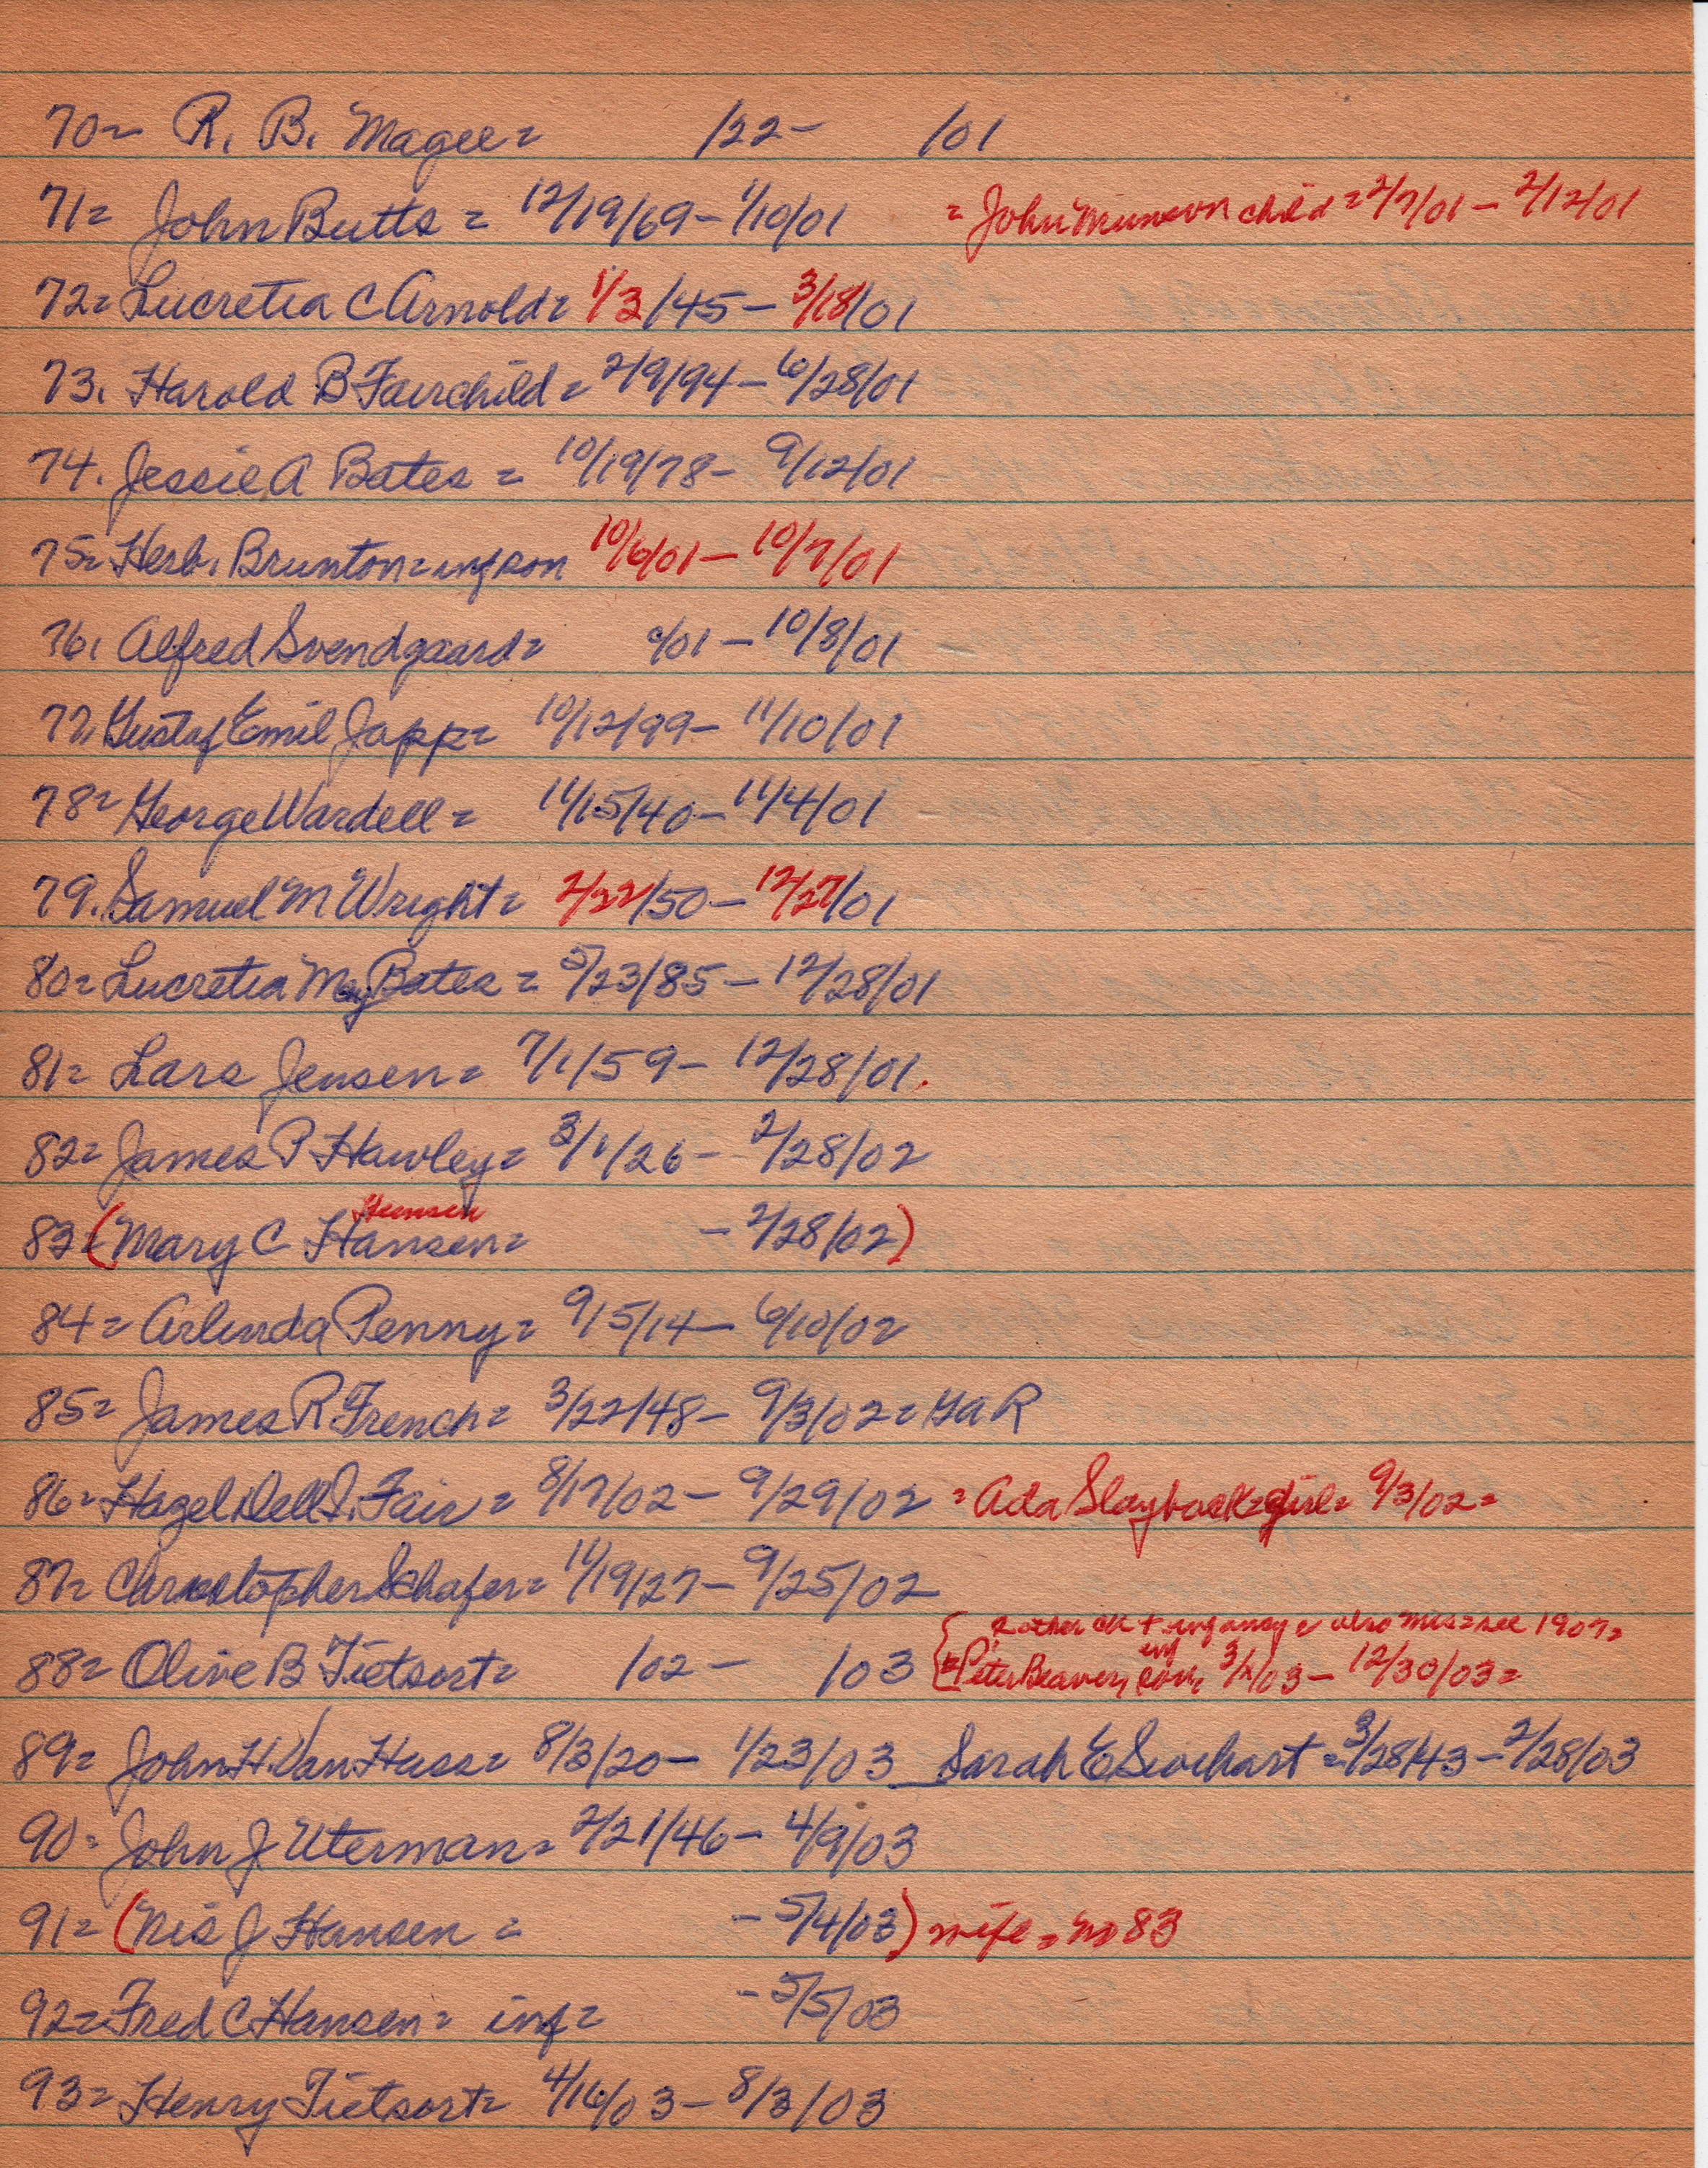 70= R. B. Magee= /22- /01
71= John Butts = 12/19/69- 1/10/01 = John Munson child = 2/7/01 - 2/12/01
72= Lucretia C Arnold= 1/3/45- 3/18/01
73. Harold B Fairchild= 2/9/94- 6/28/01
74. Jessie A Bates = 10/19/78- 9/12/01
75= Herb. Brunton= inf son 10/6/01- 10/7/01
76. Alfred Svendgaard= /01- 10/8/01
77. Gustaf Emil Japp= 10/12/99- 11/10/01
78= George Wardell= 11/15/40- 11/4/01
79. Samuel M Wright= 2/22/50- 12/27/01
80= Lucretia May Bates = 5/23/85- 12/28/01
81= Lars Jensen= 7/1/59- 12/28/01.
82= James P Hawley= 3/1/26- 2/28/02
Hansen
83=(Mary C Hansen= - 2/28/02)
84= Arlinda Penny= 9/5/14- 6/10/02
85= James R French= 3/22/48- 9/3/02= GaR
86= Hazel Dell I. Fair= 8/17/02- 9/29/02 = Ada Slayback=girl= 9/3/02=
87= Christopher Schafer= 11/19/27- 9/25/02
+ infancy = also mis=see 1907=
88= Olive B Tietsort= /02- /03 {= Peter Beaver, inf son, 3/ /03- 12/30/03=
89= John H. Van Huss= 8/3/20- 1/23/03 Sarah E Swehart = 3/28/43- 2/28/03
90= John J Uterman= 2/21/46- 4/9/03
91= (Nis J Hansen = - 5/4/03) wife = no 83
92= Fred C Hansen= inf= - 5/5/03
93= Henry Tietsort= 4/16/03- 8/3/03